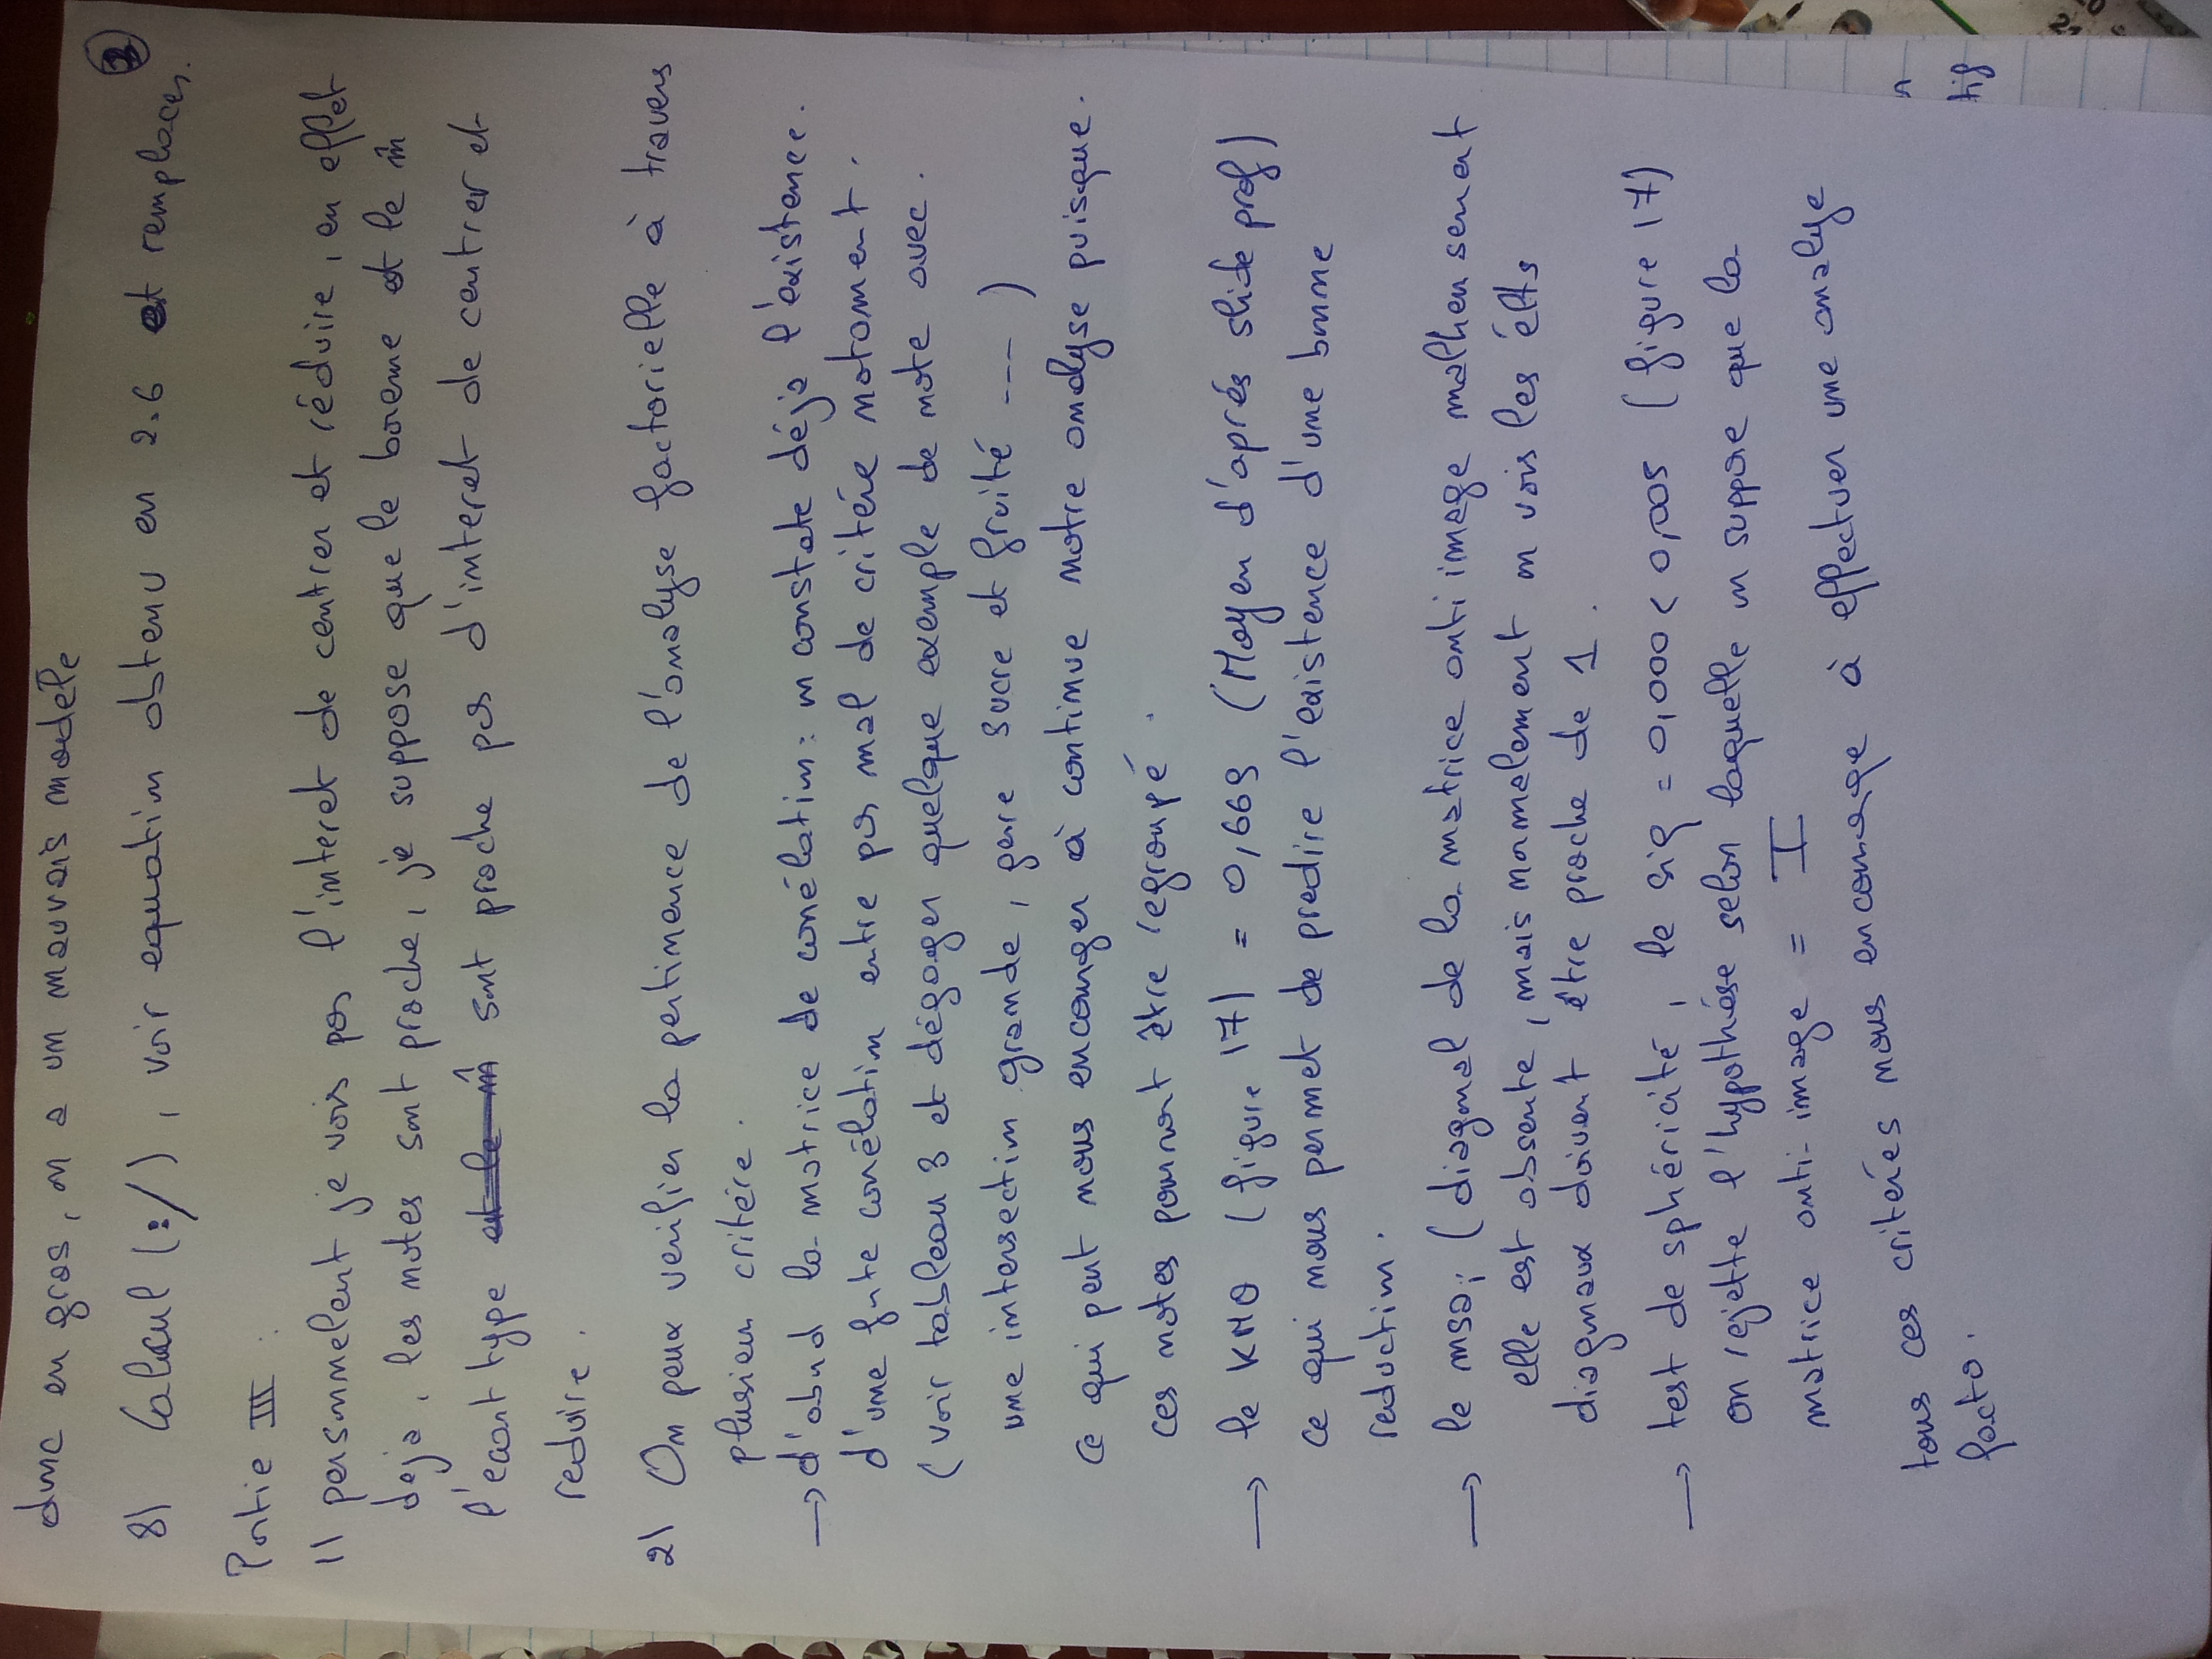 3
donc en gros, on a un mauvais modèle
8) Calcul (:/), voir equation obtenu en 2.6 et remplacer.
Partie III
1) personnelement je vois pas l'interet de centrer et réduire, en effet
deja, les notes sont proche, je suppose que le bareme est le m̂
l'ecart type sont proche pas d'interet de centrer et
reduire.
2) On peux verifier la pertinence de l'analyse factorielle à travers
plusieur critère.
→ d'abord la matrice de corrélation: on constate déja l'existence.
d'une forte corrélation entre pas mal de critère notament.
(voir tableau 3 et dégager quelque exemple de note avec.
une intersection grande, genre sucre et fruité ---)
ce qui peut nous encourager à continue notre analyse puisque.
ces notes pourront être regroupé.
→ le KMO (figure 17) = 0,669 (Moyen d'après slide prof)
ce qui nous permet de predire l'existence d'une bonne
reduction.
→ le msai (diagonal de la matrice anti image malheureusement
elle est absente, mais normalement on vois les élts
diagonaux doivent être proche de 1.
→ test de sphéricité, le sig = 0,000 < 0,005 (figure 17)
on rejette l'hypothèse selon laquelle on suppose que la
matrice anti-image = I
tous ces critères nous encourage à effectuer une analyse
facto.
20
21
n
tif